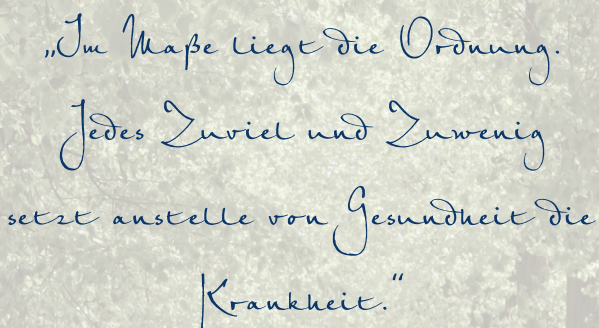 „Im Maße liegt die Ordnung.
Jedes Zuviel und Zuwenig
setzt anstelle von Gesundheit die
Krankheit.“